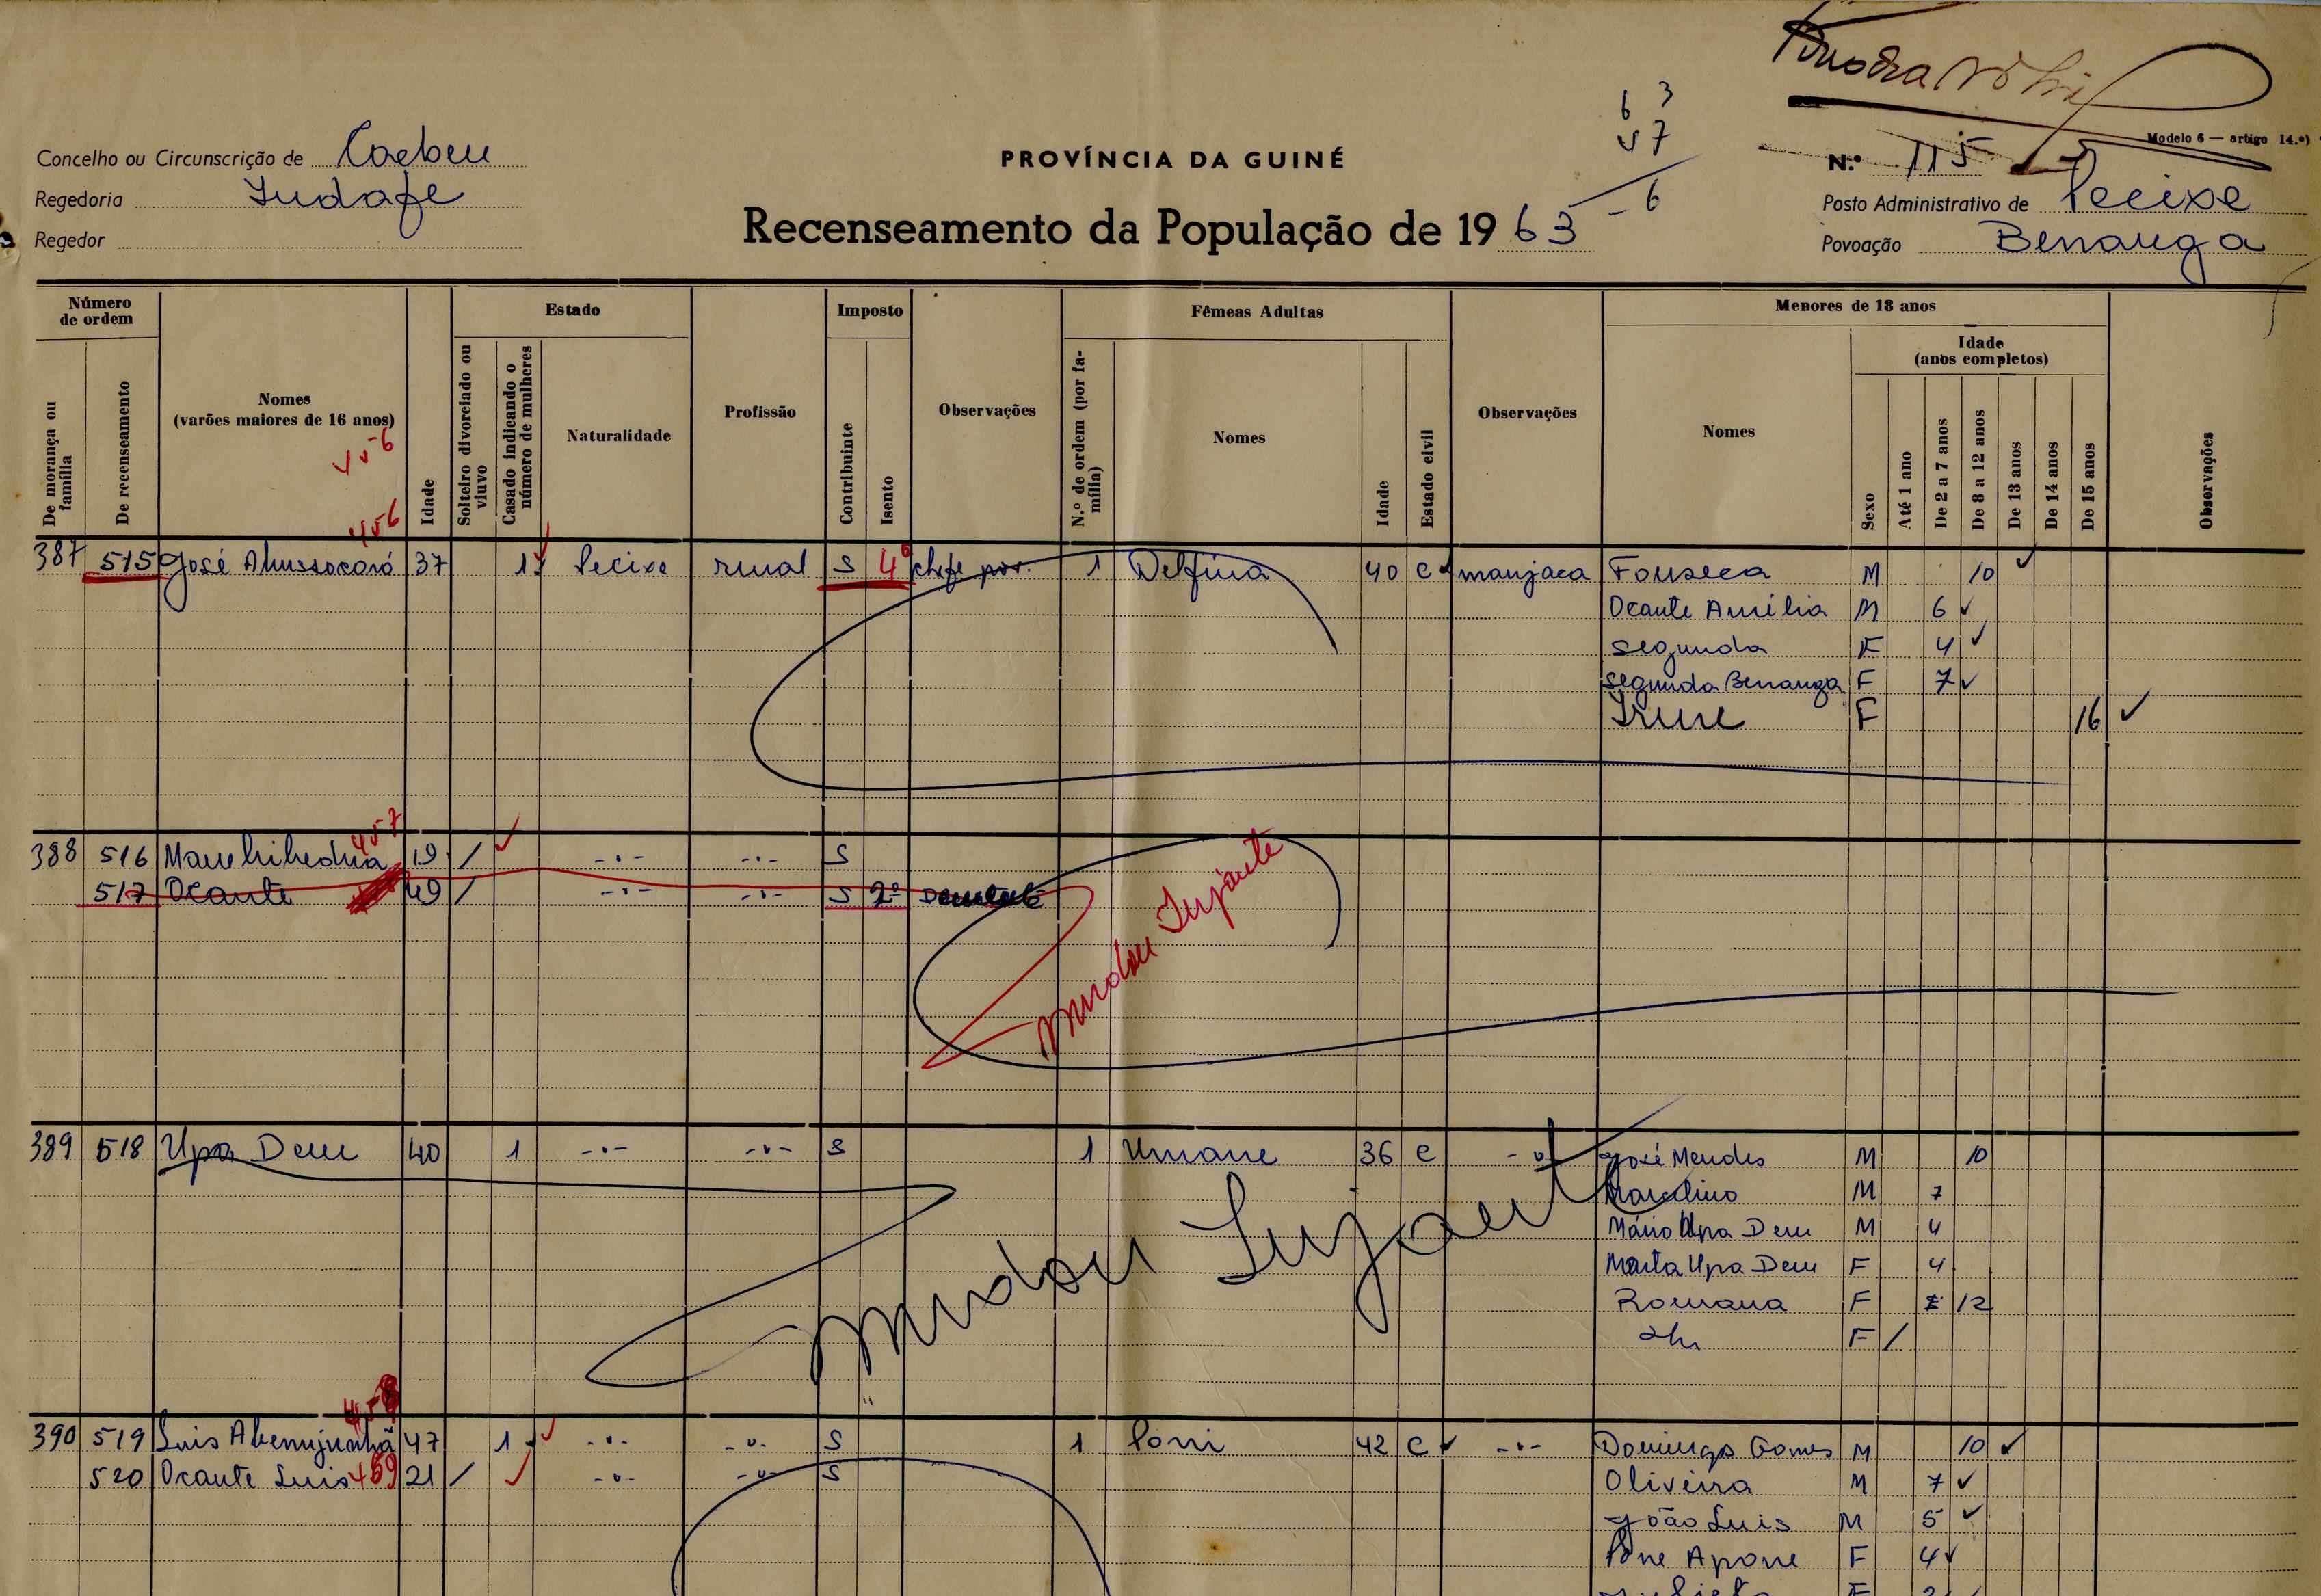 6 3
57
- 6
Modelo 6 — artigo 14.º)
Concelho ou Circunscrição de
PROVÍNCIA DA GUINÉ
N.º 115
Regedoria
Posto Administrativo de Pecixe
Regedor
Recenseamento da População de 19 63
Povoação Benanga
Número de ordem
Estado
Imposto
Fêmeas Adultas
Menores de 18 anos
Idade (anos completos)
De morança ou família
De recenseamento
Nomes (varões maiores de 16 anos)
Idade
Solteiro divorciado ou viuvo
Casado indicando o número de mulheres
Naturalidade
Profissão
Contribuinte
Isento
Observações
N.º de ordem (por família)
Nomes
Idade
Estado civil
Observações
Nomes
Sexo
Até 1 ano
De 2 a 7 anos
De 8 a 12 anos
De 13 anos
De 14 anos
De 15 anos
Observações
456
456
387 515 José 37 1 Pecixe rural S 4º chefe pov. 1 Delfina 40 C manjaca Fonseca M 10
Ocante Amélia M 6
Segunda F 4
Segunda Benanga F 7
Irene F 16
457
388 516 19 / -·- -·- S
517 Ocante 49 / -·- -·- S 2º Demente
Mudou
389 518 Upa Dem 40 1 -·- -·- S 1 Umane 36 C José Mendes M 10
Marcelino M 7
Mário Upa Dem M 4
Marta Upa Dem F 4
Romana F 12
F /
Mudou
458
390 519 Luis 47 1 -·- -·- S 1 Poni 42 C -·- Domingos Gomes M 10
520 Ocante Luis 459 21 / -·- -·- S Oliveira M 7
João Luis M 5
Pone Apone F 4